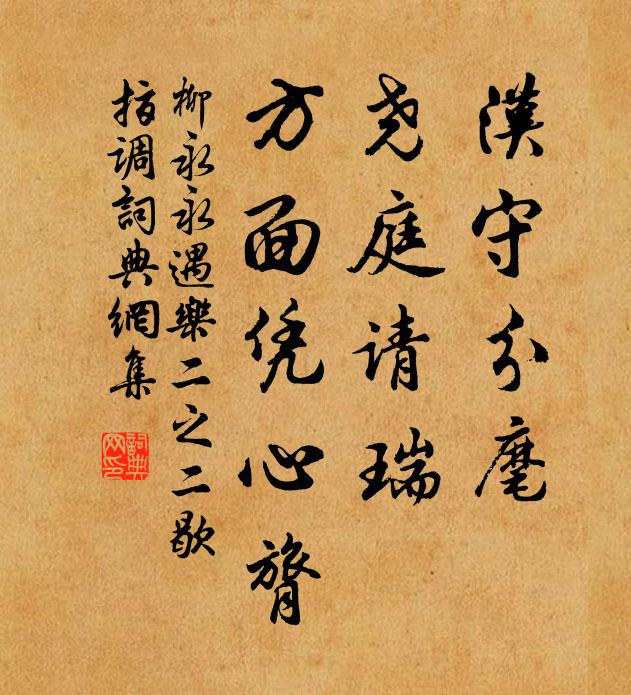 漢守分麾
尧庭请瑞
方面凭心膂
柳永永遇樂二之二歇
指调詞典網集
詞典网印